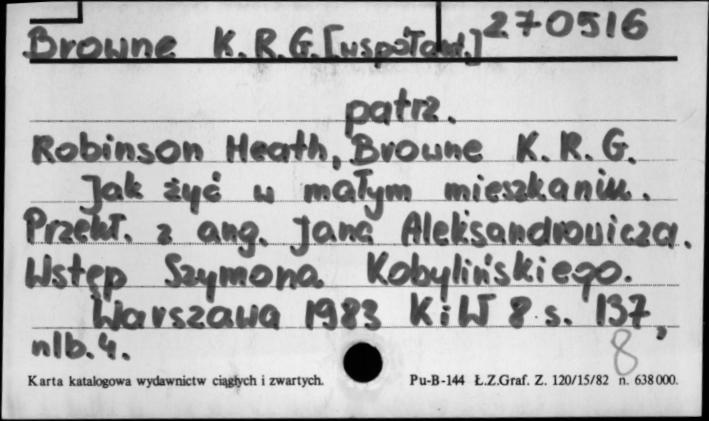 270516
Browne K.R.G. [współaut.]
patrz.
Robinson Heath, Browne K. R. G.
Jak żyć w małym mieszkaniu.
Przekł. z ang. Jana Aleksandrowicza.
Wstęp Szymona Kobylińskiego.
Warszawa 1983 KiW 8 s. 137,
nlb. 4.
8
Karta katalogowa wydawnictw ciągłych i zwartych. Pu-B-144 Ł.Z.Graf. Z. 120/15/82 n. 638000.